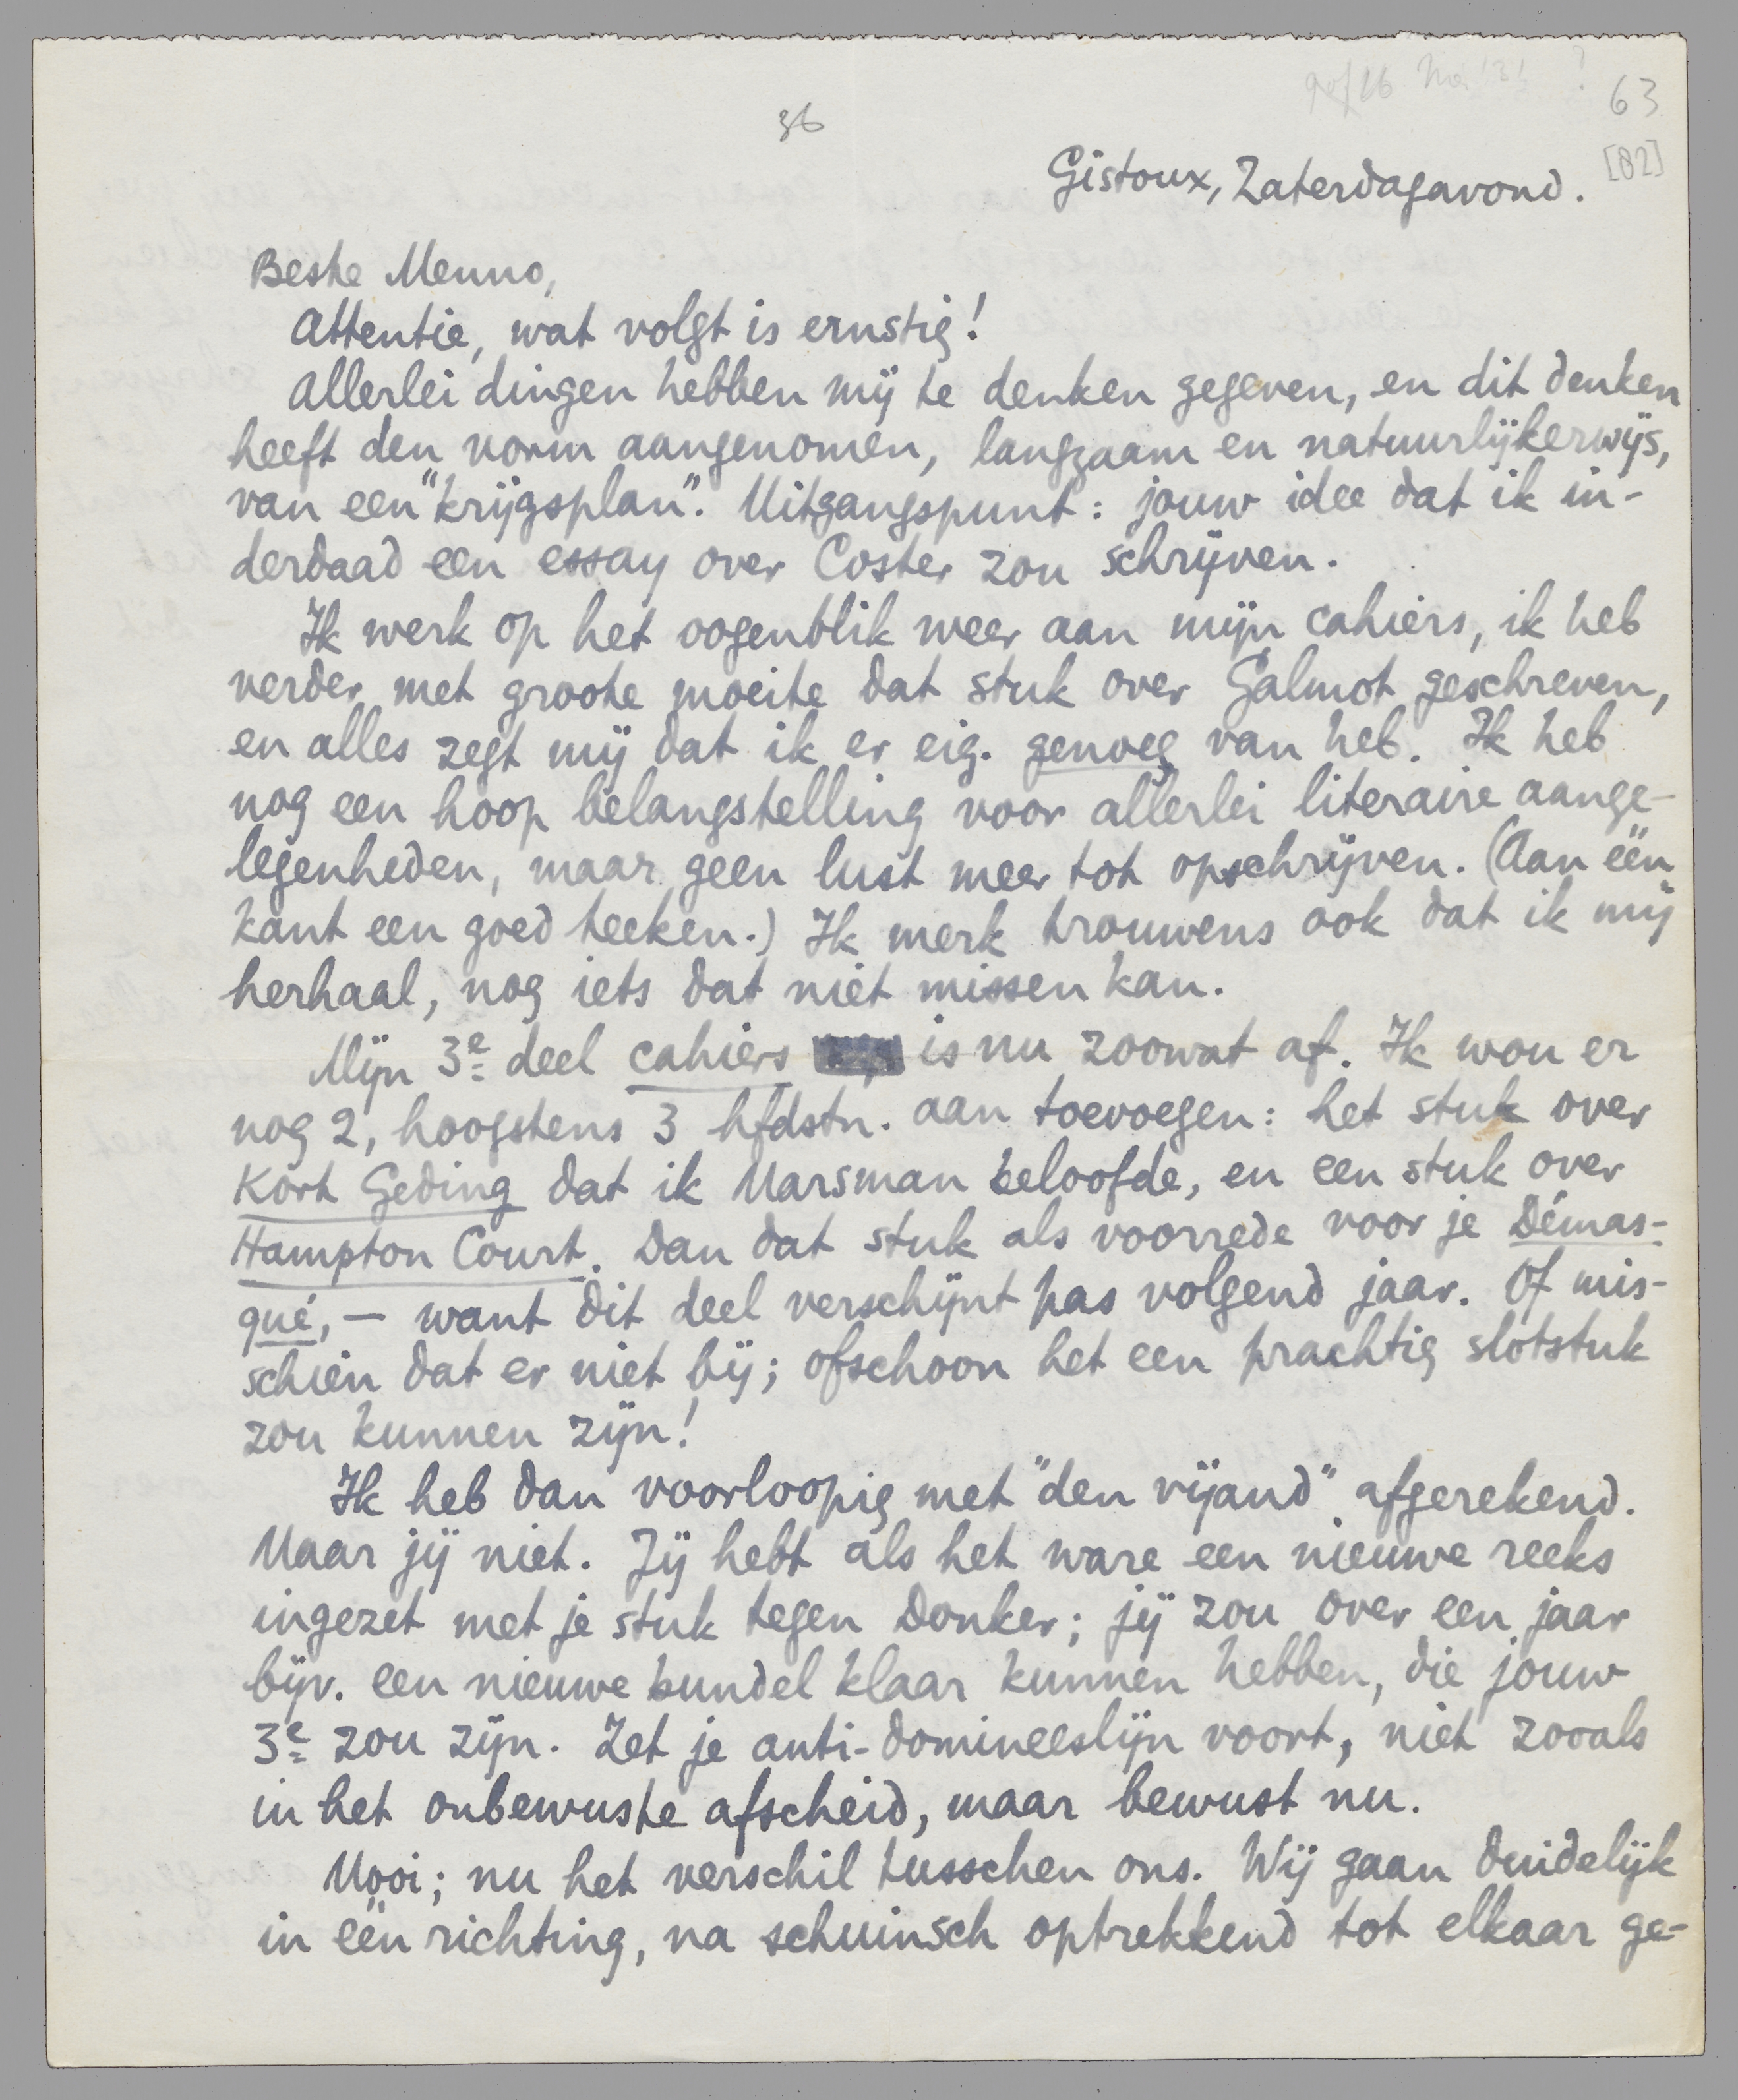 63
36
[82]
Gistoux, Zaterdagavond.
Beste Menno,
Attentie, wat volgt is ernstig!
Allerlei dingen hebben mij te denken gegeven, en dit denken
heeft den vorm aangenomen, langzaam en natuurlijkerwijs,
van een "krijgsplan". Uitgangspunt: jouw idee dat ik in-
derdaad een essay over Coster zou schrijven.
Ik werk op het oogenblik weer aan mijn cahiers, ik heb
verder met groote moeite dat stuk over Galmot geschreven,
en alles zegt mij dat ik er eig. genoeg van heb. Ik heb
nog een hoop belangstelling voor allerlei literaire aange-
legenheden, maar geen lust meer tot opschrijven. (Aan één
kant een goed teeken.) Ik merk trouwens ook dat ik mij
herhaal, nog iets dat niet missen kan.
Mijn 3e deel cahiers is nu zoowat af. Ik wou er
nog 2, hoogstens 3 hfdstn. aan toevoegen: het stuk over
Kort Geding dat ik Marsman beloofde, en een stuk over
Hampton Court. Dan dat stuk als voorrede voor je Démas-
qué, — want dit deel verschijnt pas volgend jaar. Of mis-
schien dat er niet bij; ofschoon het een prachtig slotstuk
zou kunnen zijn!
Ik heb dan voorloopig met "den vijand" afgerekend.
Maar jij niet. Jij hebt als het ware een nieuwe reeks
ingezet met je stuk tegen Donker; jij zou over een jaar
bijv. een nieuwe bundel klaar kunnen hebben, die jouw
3e zou zijn. Zet je anti-domineeslijn voort, niet zooals
in het onbewuste afscheid, maar bewust nu.
Mooi; nu het verschil tusschen ons. Wij gaan duidelijk
in één richting, na schuinsch optrekkend tot elkaar ge-